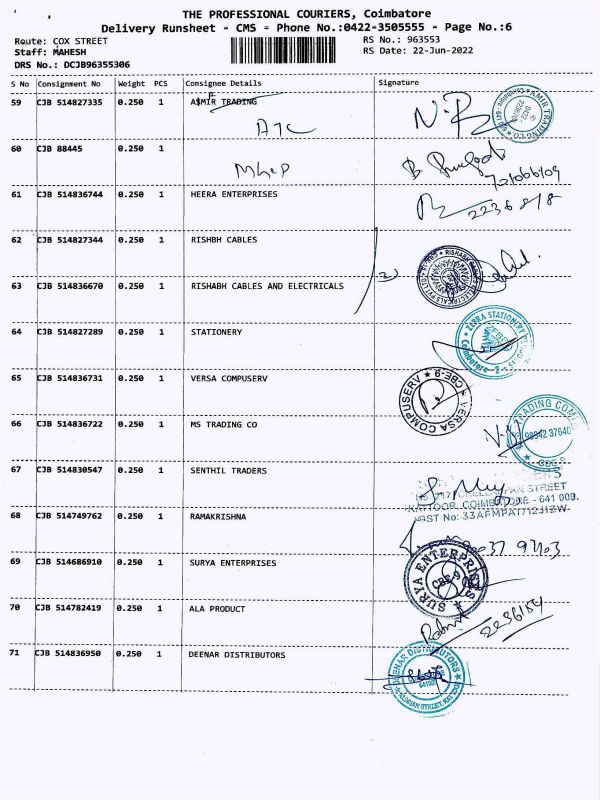 THE PROFESSIONAL COURIERS, Coimbatore
Delivery Runsheet - CMS - Phone No.:0422-3505555 - Page No.:6
Route: COX STREET
RS No.: 963553
Staff: MAHESH
RS Date: 22-Jun-2022
DRS No.: DCJB96355306
S No Consignment No Weight PCS Consignee Details Signature
59 CJB 514827335 0.250 1 ASMIR TRADING
ATC
AMIR TRADING CO
60 CJB 88445 0.250 1
61 CJB 514836744 0.250 1 HEERA ENTERPRISES
62 CJB 514827344 0.250 1 RISHBH CABLES
63 CJB 514836670 0.250 1 RISHABH CABLES AND ELECTRICALS
64 CJB 514827289 0.250 1 STATIONERY
ZEBRA STATIONERY
Coimbatore
65 CJB 514836731 0.250 1 VERSA COMPUSERV
VERSA COMPUSERV ★ CBE-9 ★
66 CJB 514836722 0.250 1 MS TRADING CO
TRADING COM
67 CJB 514830547 0.250 1 SENTHIL TRADERS
STREET
KATTOOR, COIMBATORE - 641 009.
68 CJB 514749762 0.250 1 RAMAKRISHNA
69 CJB 514686910 0.250 1 SURYA ENTERPRISES
SURYA ENTERPRISES
CBE-9
70 CJB 514782419 0.250 1 ALA PRODUCT
71 CJB 514836950 0.250 1 DEENAR DISTRIBUTORS
DEENAR DISTRIBUTORS